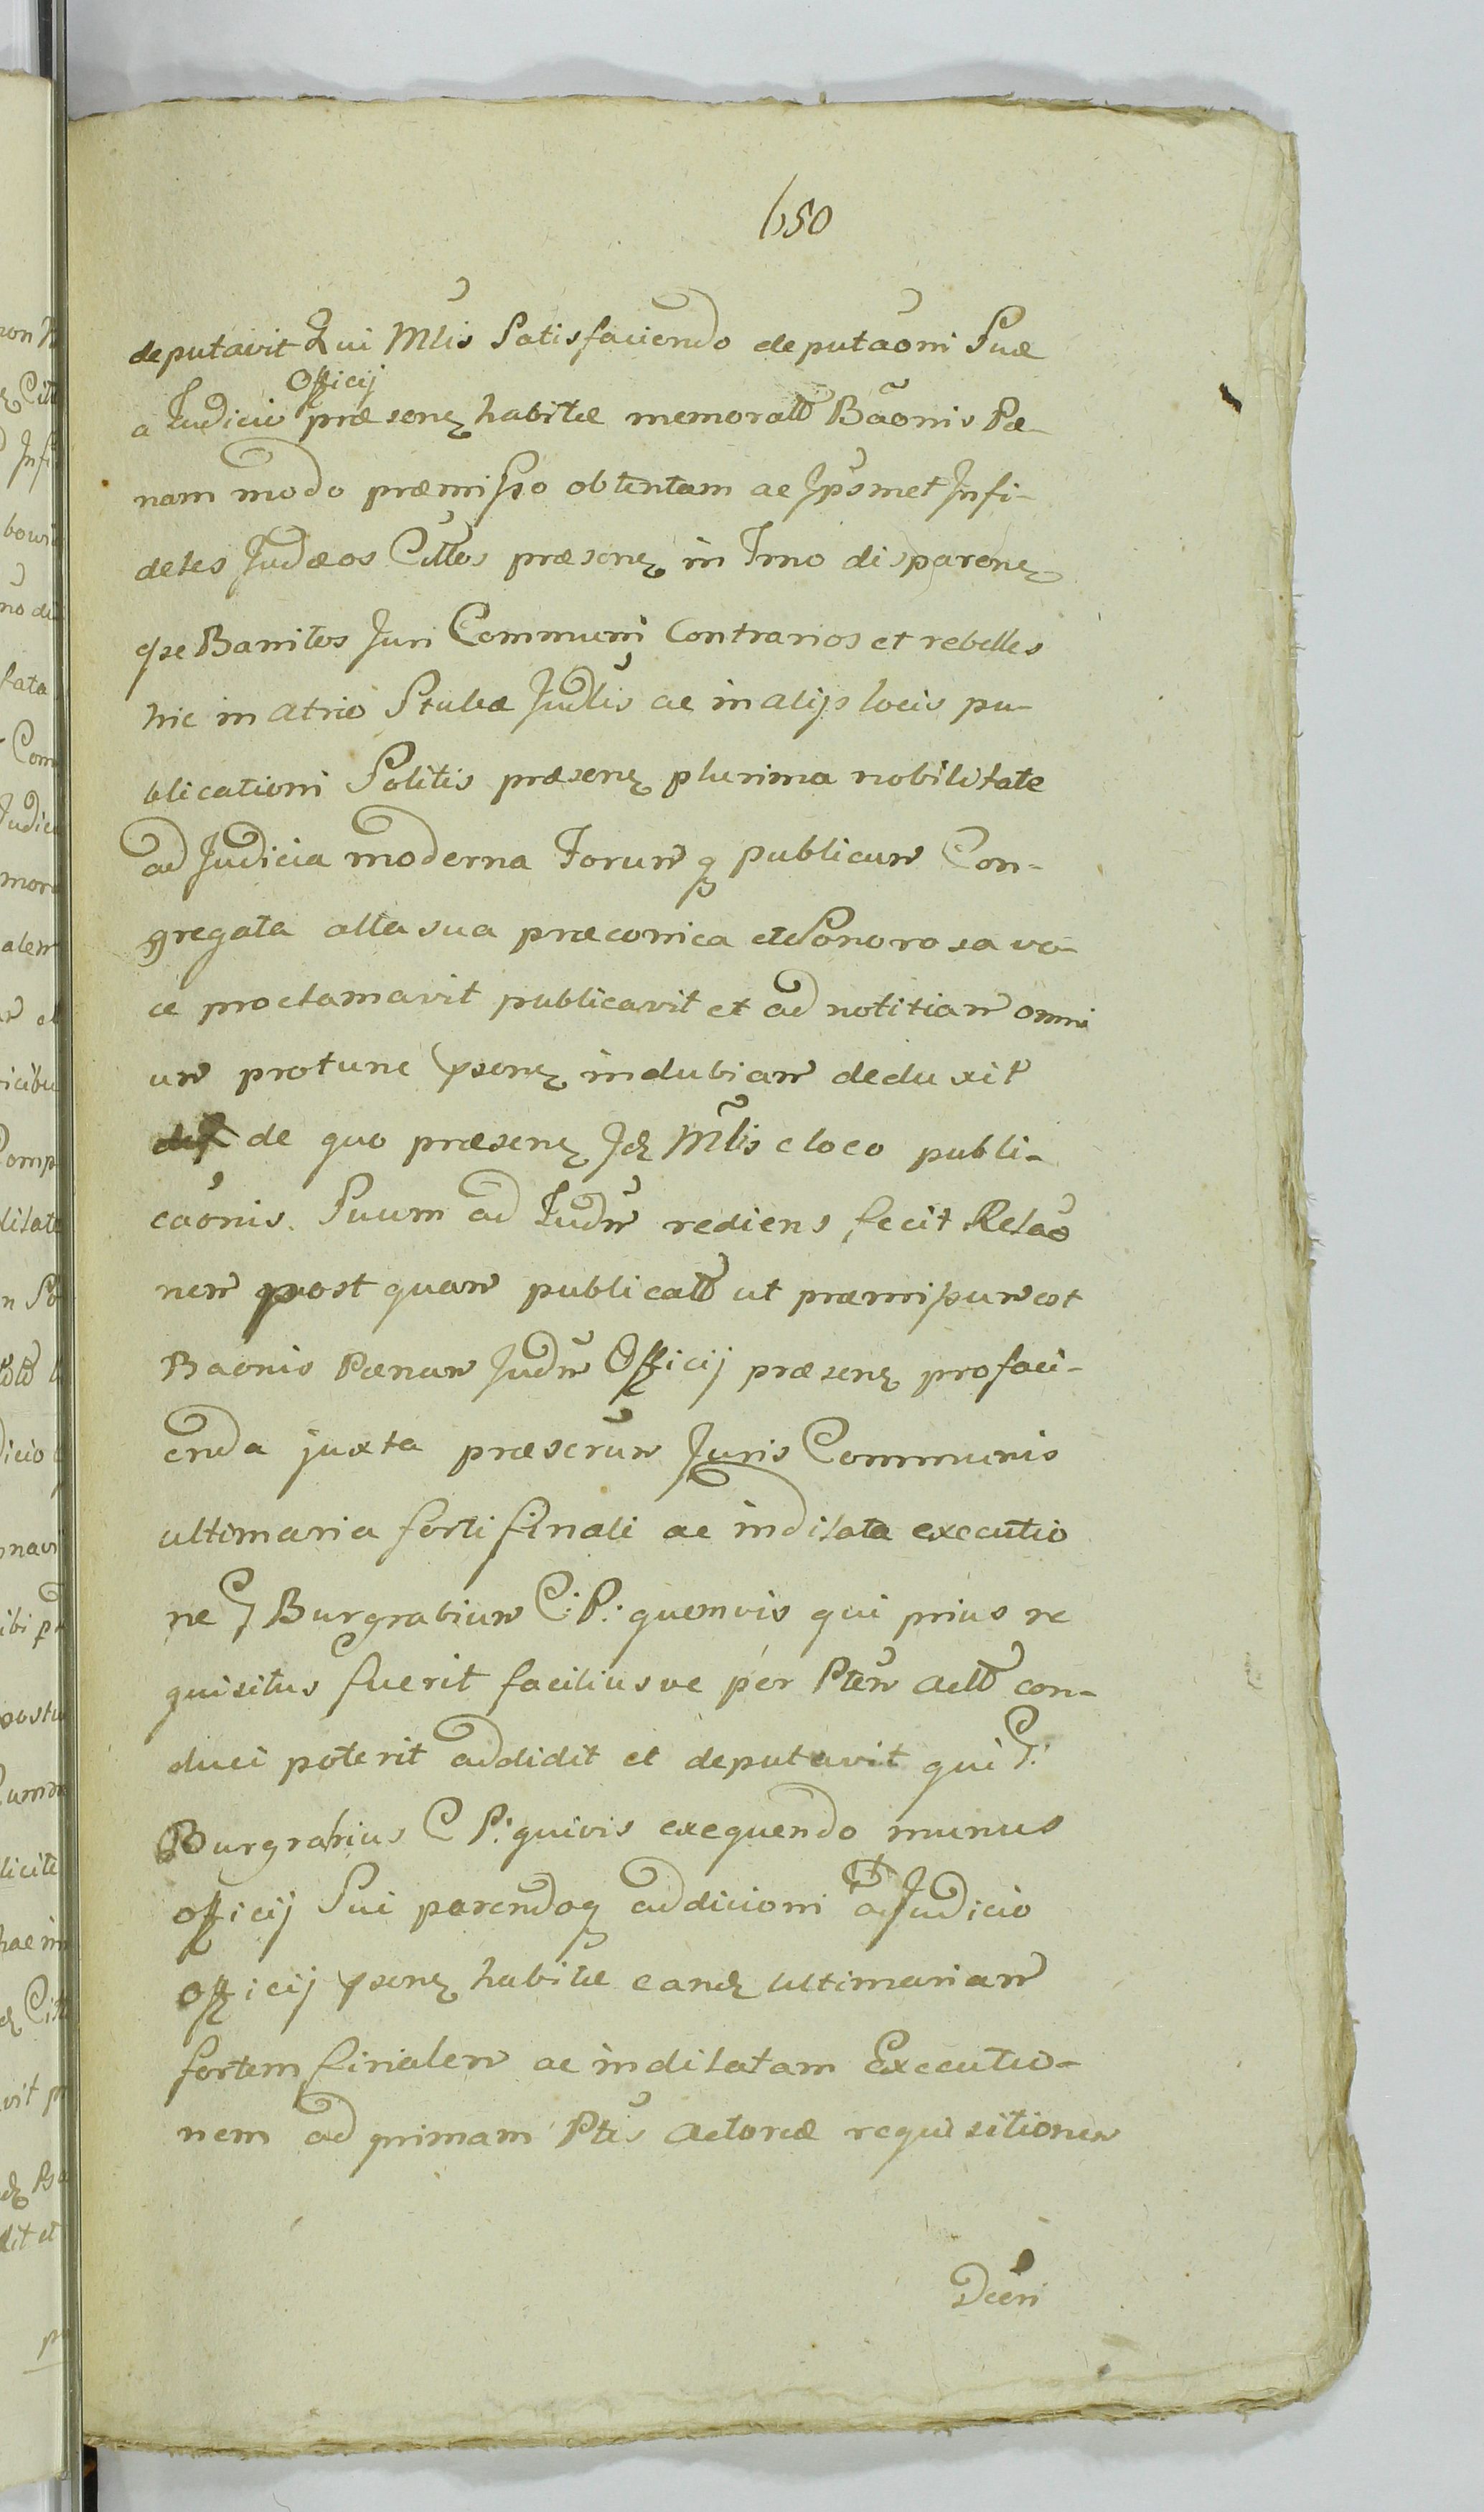 650
deputavit Qui Mlis Satisfaciendo deputaõni Suæ
a Judicio Officij præsenƶ habitæ memorattã Bãonis Pæ-
nam modo præmisso obtentam ac Jpsmet Jnfi-
deles Judæos Cittos præsenƶ in Tmo disparenƶ
qse Bannitos Juri Communi Contrarios et rebelles
hic in atrio Stubæ Judlis ac in alijs locis pu-
blicationi Solitis præsenƶ plurima nobilitate
ad Judicia moderna Forum q publicum Con-
gregata alta sua præconica et Sonorosa vo-
ce proclamavit publicavit et ad notitiam omni
um protunc psenƶ indubiam deduxit
de quo præsenƶ Jdƶ Mlis e loco publi-
caõnis Suum ad Judm rediens fecit Relaõ
nem post quam publicattã ut præmissum est
Baonis Pænam Judm Officij præsenƶ pro faci-
enda juxta præscrum Juris Communis
ultimaria forti finali ac indilata executio
ne G Burgrabium C: P: quemvis qui prius re
quisitus fuerit faciliusve per Ptem acttã con-
duci poterit addidit et deputavit qui G:
Burgrabius C P: quivis exequendo munus
officij Sui parendoq addicioni a Judicio
Officij psenƶ habitæ eandƶ ultimariam
fortem finalem ac indilatam Executio-
nem ad primam Ptis actoreæ requisitionem
Dceri